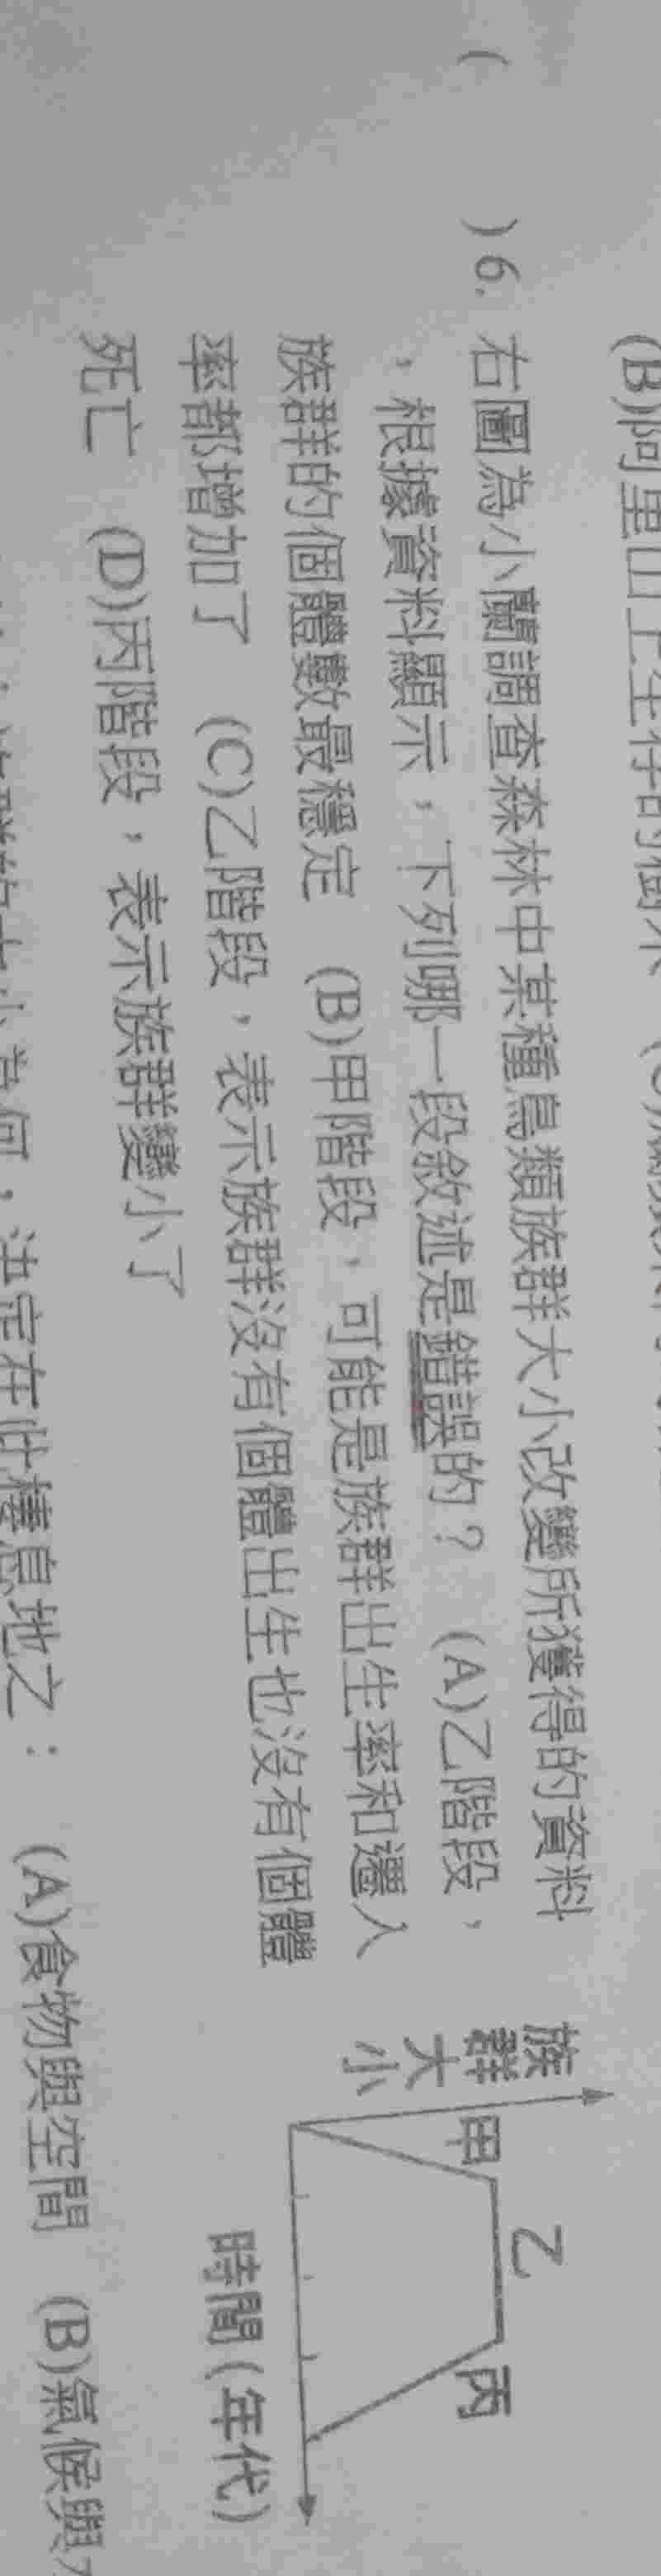 (B)阿里山上生存的樹木
( )6. 右圖為小蘭調查森林中某種鳥類族群大小改變所獲得的資料
，根據資料顯示，下列哪一段敘述是錯誤的？ (A)乙階段，
族群的個體數最穩定 (B)甲階段，可能是族群出生率和遷入
率都增加了 (C)乙階段，表示族群沒有個體出生也沒有個體
死亡 (D)丙階段，表示族群變小了
族群大小
甲
乙
丙
時間(年代)
決定在此棲息地之： (A)食物與空間 (B)氣候與